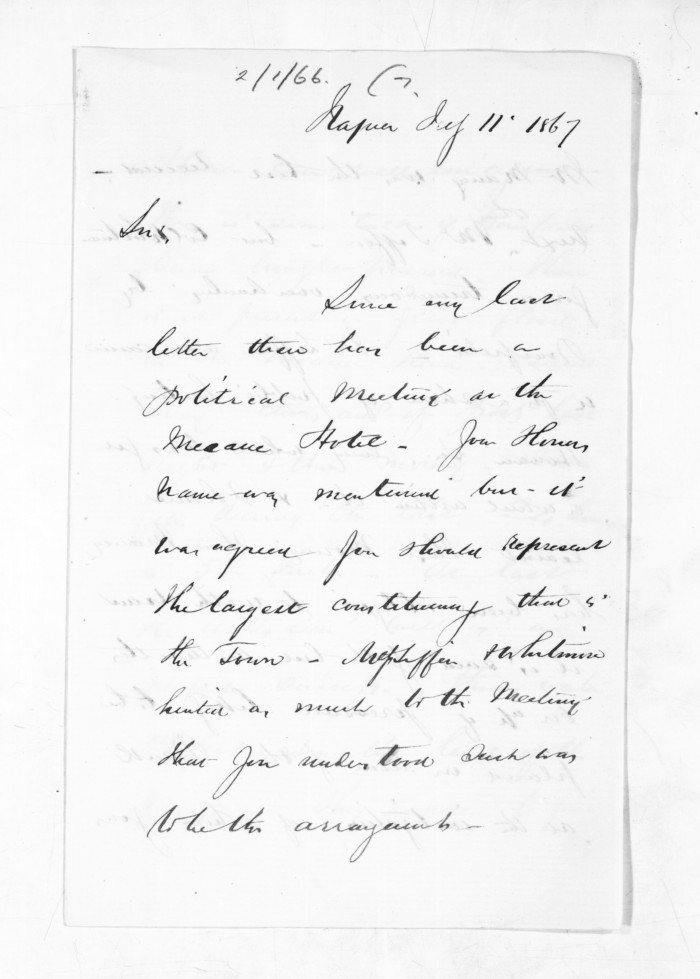 2/1/66.
Napier July 11th 1867
Sir,
Since my last
letter there has been a
political Meeting at the
Meeanee Hotel - Your Honors
name was mentioned but - it
was agreed you should represent
the largest constituency that is
the Town - Whitmore
hinted as much to the Meeting
that you understood such was
to be the arrangements -